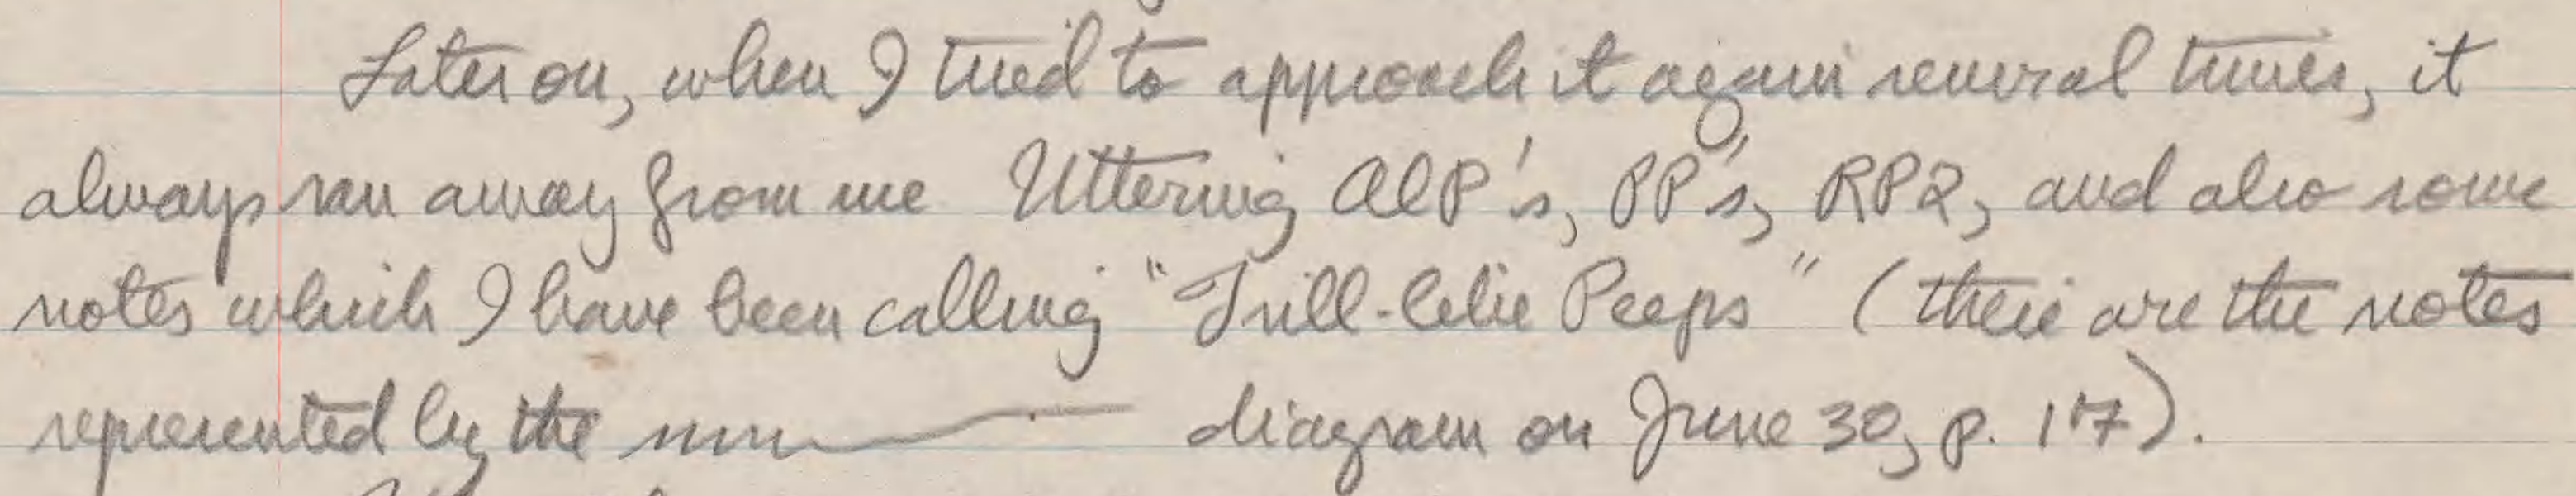 Later on, when I tried to approach it again several times, it
always ran away from me Uttering AlP's, PP's, RP2, and also some
notes which I have been calling "Trill-like Peeps" (these are the notes
represented by the diagram on June 30, p. 17).